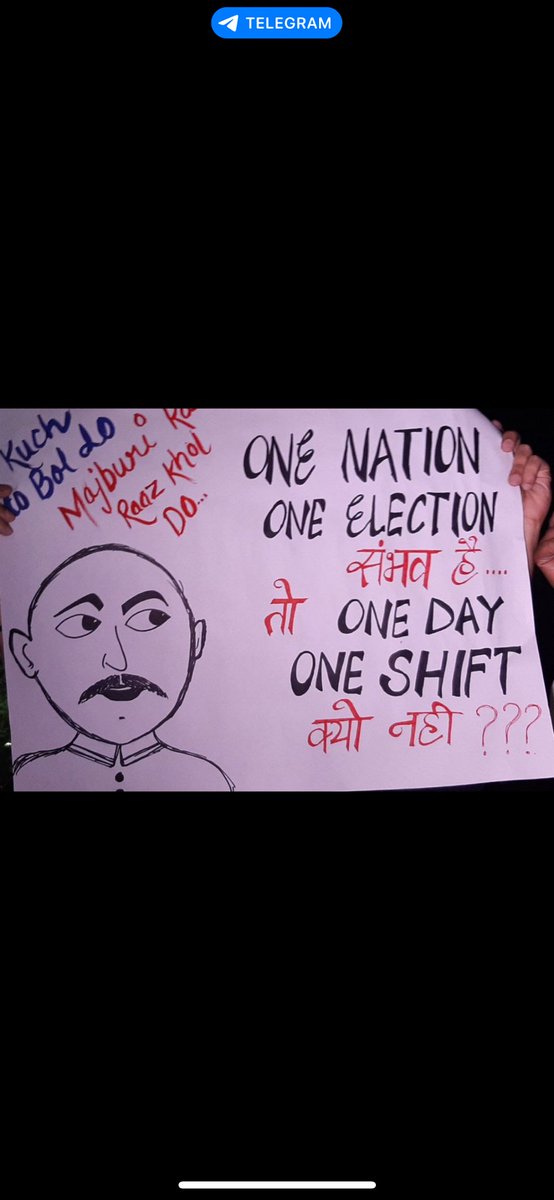 TELEGRAM
Kuch
to Bol do
Majburi Ka
Raaz Khol
Do...
ONE NATION
ONE ELECTION
संभव है....
तो ONE DAY
ONE SHIFT
क्यो नही ???